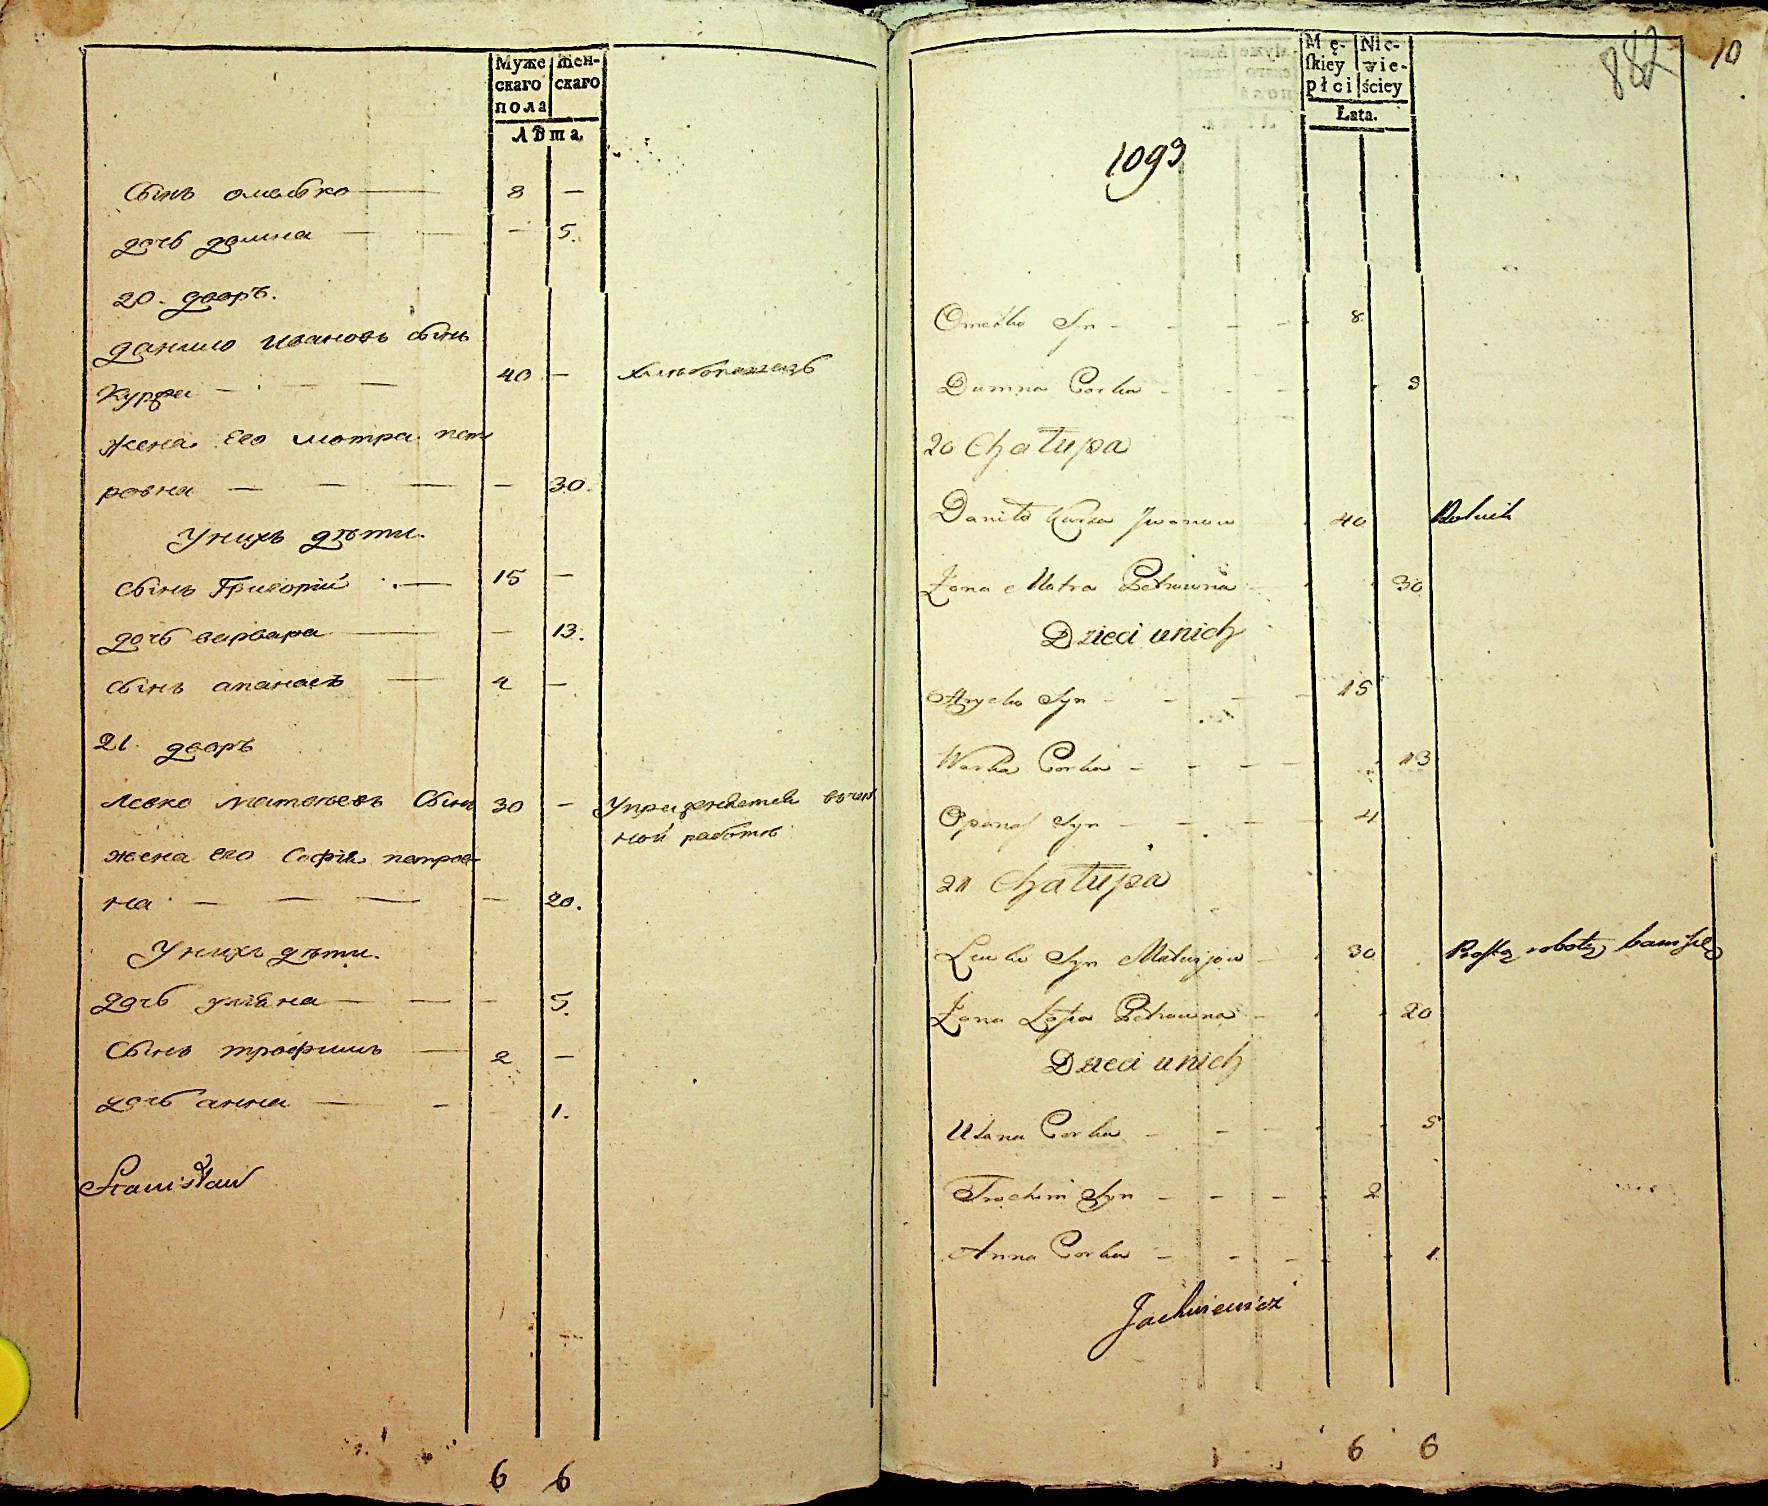 Муже
скаго
пола
Жен-
скаго
Лѣта.
Сынъ омелько 8 —
дочь домна — 5.
20. дворъ.
данило Ивановъ сынъ
Курза 40 — Хлѣбопашецъ
жена его мотра пет
ровна — 30.
Унихъ дѣти.
Сынъ Григорій 15 —
дочь варвара — 13.
сынъ апанасъ 4 —
21. дворъ
Левко матвѣевъ Сынъ 30 — Упражняется въ чер
ной работѣ
жена его Софія петров-
на — 20.
Унихъ дѣти.
дочь уляна — 5.
Сынъ трофимъ 2 —
дочь анна — 1.
Stanisław
6 6
882 10
Mę-
ſkiey
płci
Nie-
wie-
ściey
Łata.
1093
Omelko Syn 8
Dumna Corka 9
20 Chałupa
Daniło Kurza Jwanow 40 Rolnik
Żona Motra Petrowna 30
Dzieci unich
Hrycko Syn 15
Warka Corka 13
Opanas Syn 4
21 Chałupa
Lewko Syn Matwijow 30 Prostą robotą bawi się
Żona Zofia Petrowna 20
Dzieci unich
Ulana Corka 5
Trochim Syn 2
Anna Corka 1
Jachniewicz
6 6